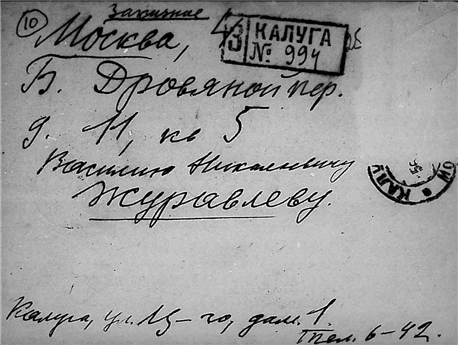 10
Заказное
Москва, 4
З КАЛУГА
№ 994
Б. Дровяной пер.
д. 11, кв 5
Василию Николаевичу
Журавлеву.
КАЛУ
Калуга, ул.
Тел. 6-42.